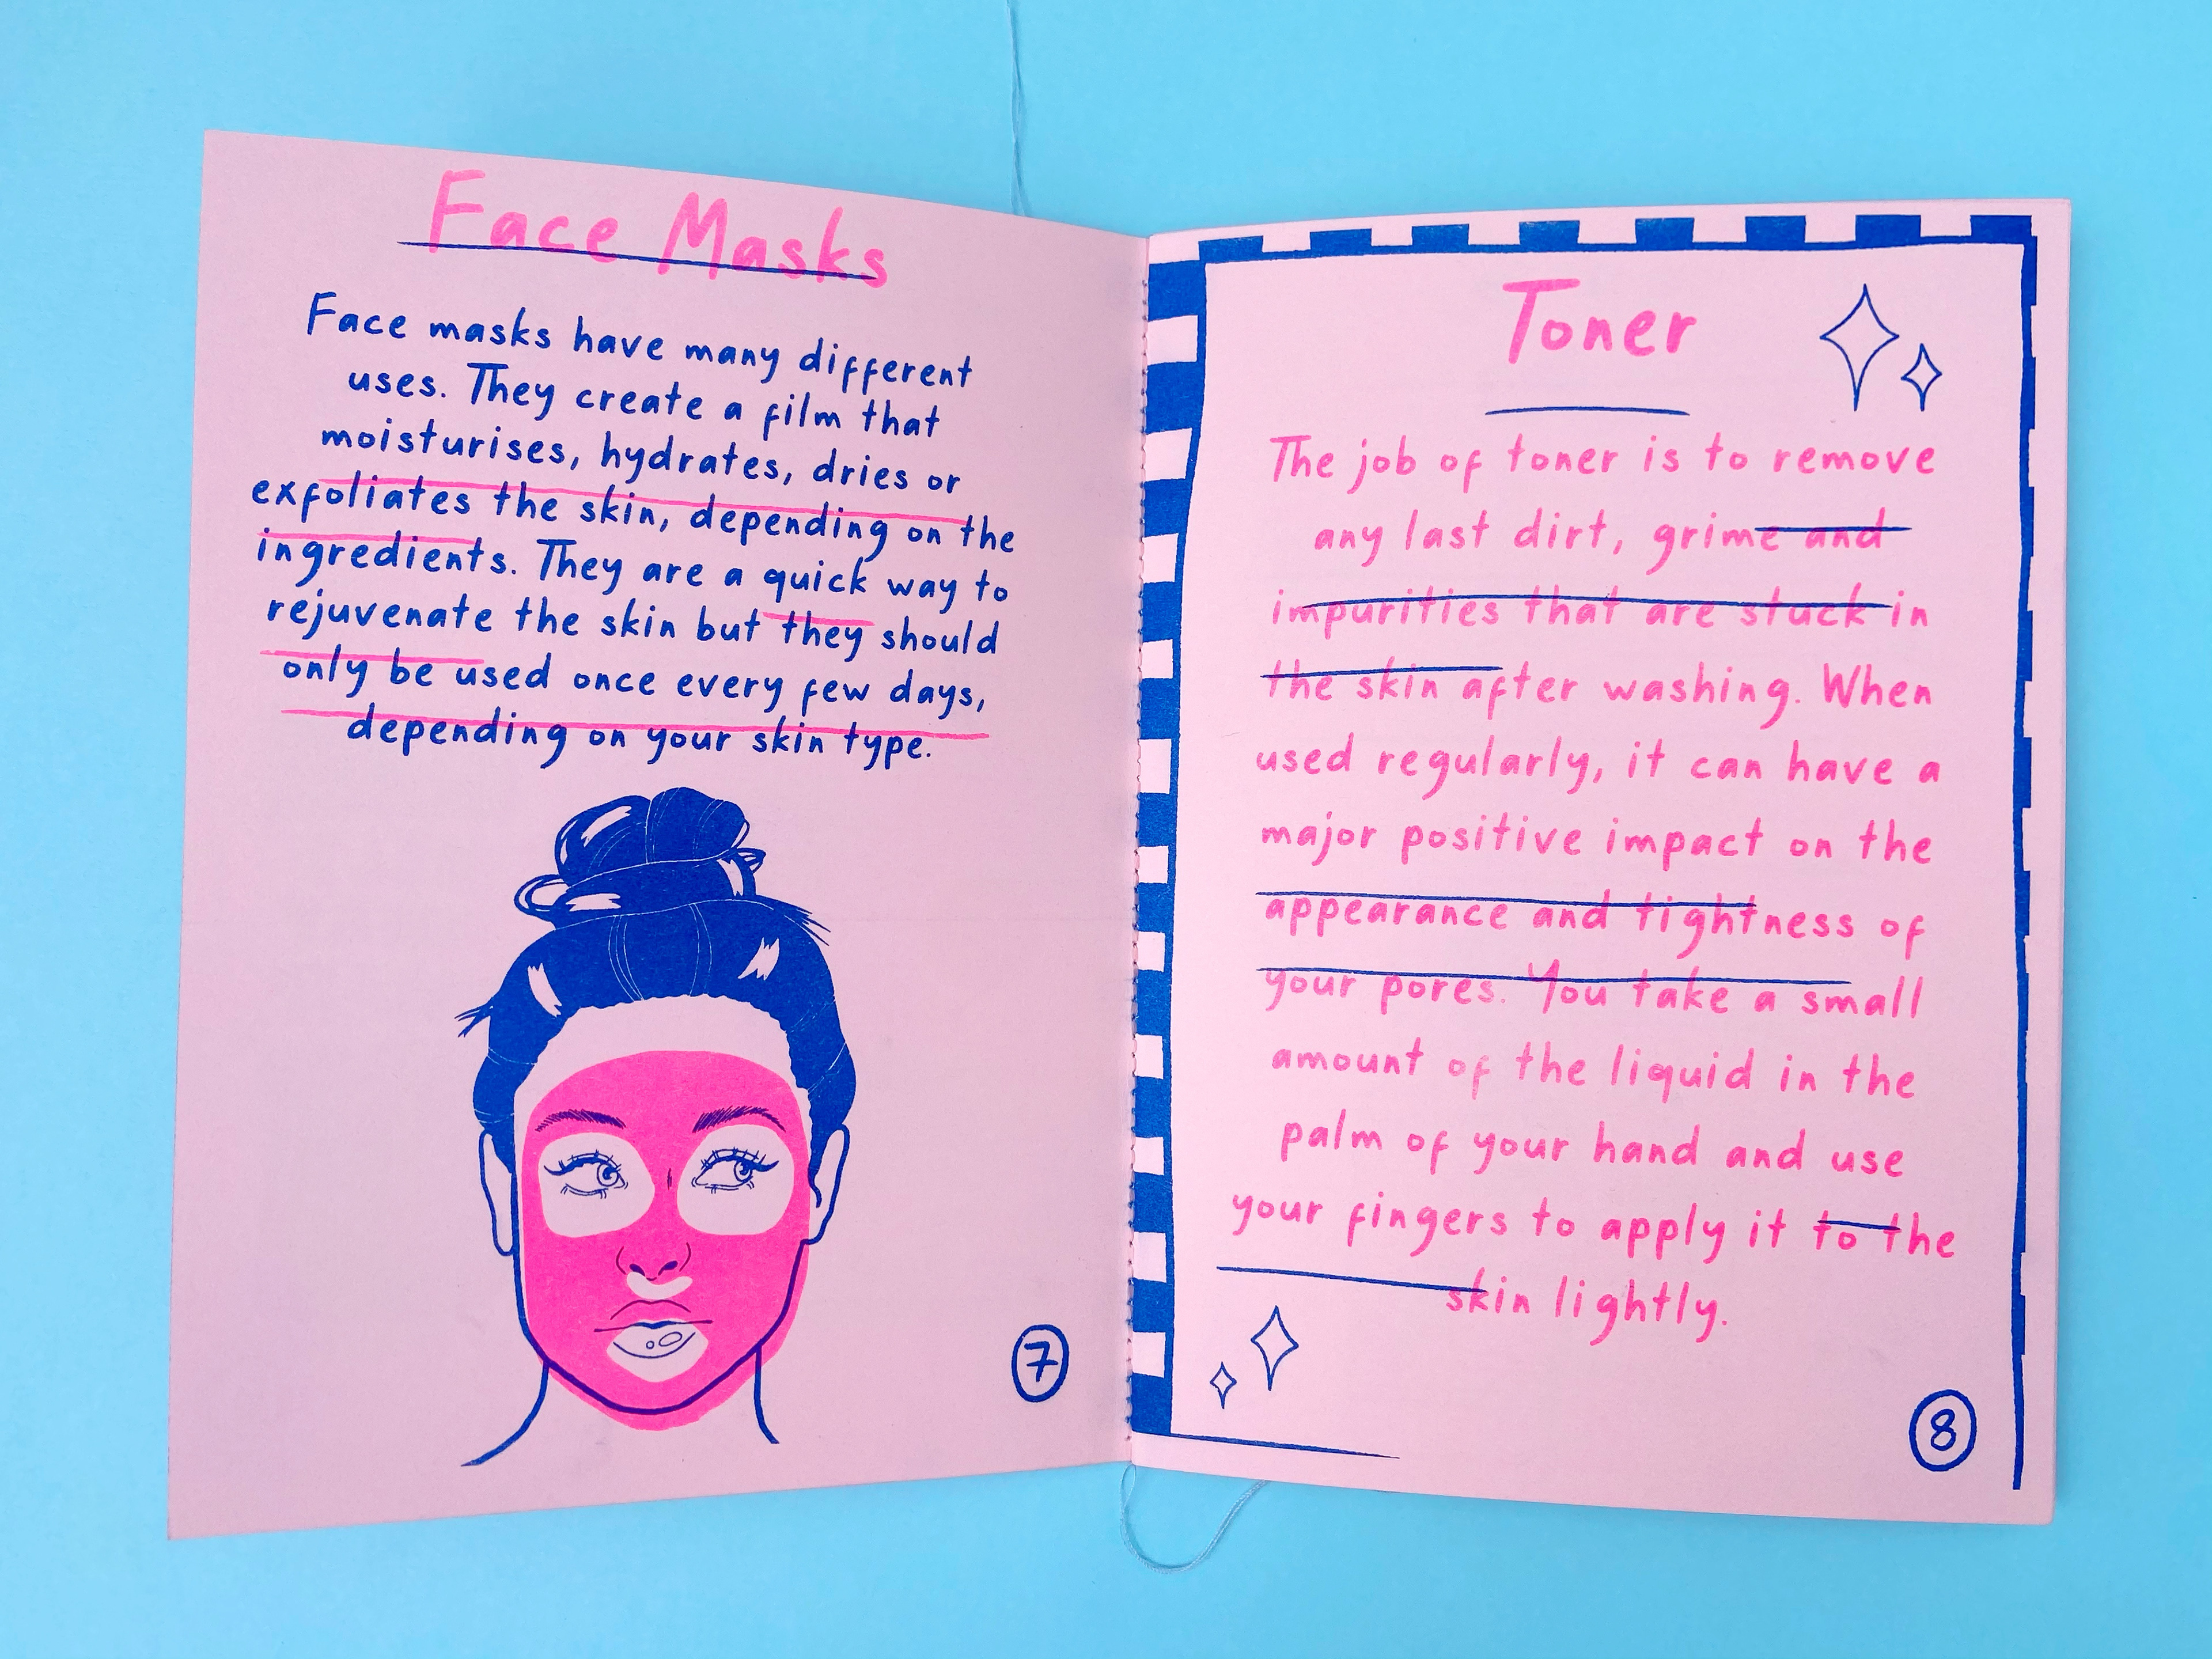 Face Masks
Face masks have many different
uses. They create a film that
moisturises, hydrates, dries or
exfoliates the skin, depending on the
ingredients. They are a quick way to
rejuvenate the skin but they should
only be used once every few days,
depending on your skin type.
7
Toner
The job of toner is to remove
any last dirt, grime and
impurities that are stuck in
the skin after washing. When
used regularly, it can have a
major positive impact on the
appearance and tightness of
your pores. You take a small
amount of the liquid in the
palm of your hand and use
your fingers to apply it to the
skin lightly.
8